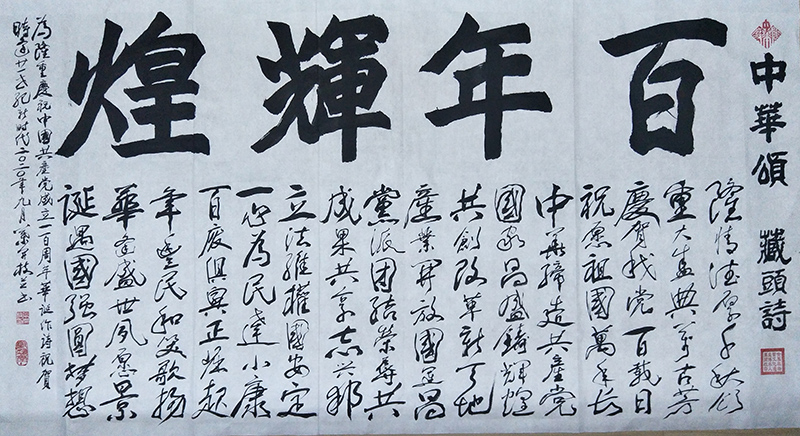 中華頌 藏頭詩
百年輝煌
隆情厚千秋頌
重大典萬古芳
慶賀我党百載日
祝愿祖國萬年長
中華締造共產党
國家昌盛鑄輝煌
共創改革新天地
產業開放國運昌
黨派團結榮辱共
成果共享志興邦
立法維權國安定
一心為民達小康
百废俱興正崛起
年豐民和笑歌揚
華逢盛世夙愿景
誕遇國強圓梦想
為隆重慶祝中國共產党成立一百周年華誕作詩祝賀
時逢廿一世紀新时代二〇二〇年九月